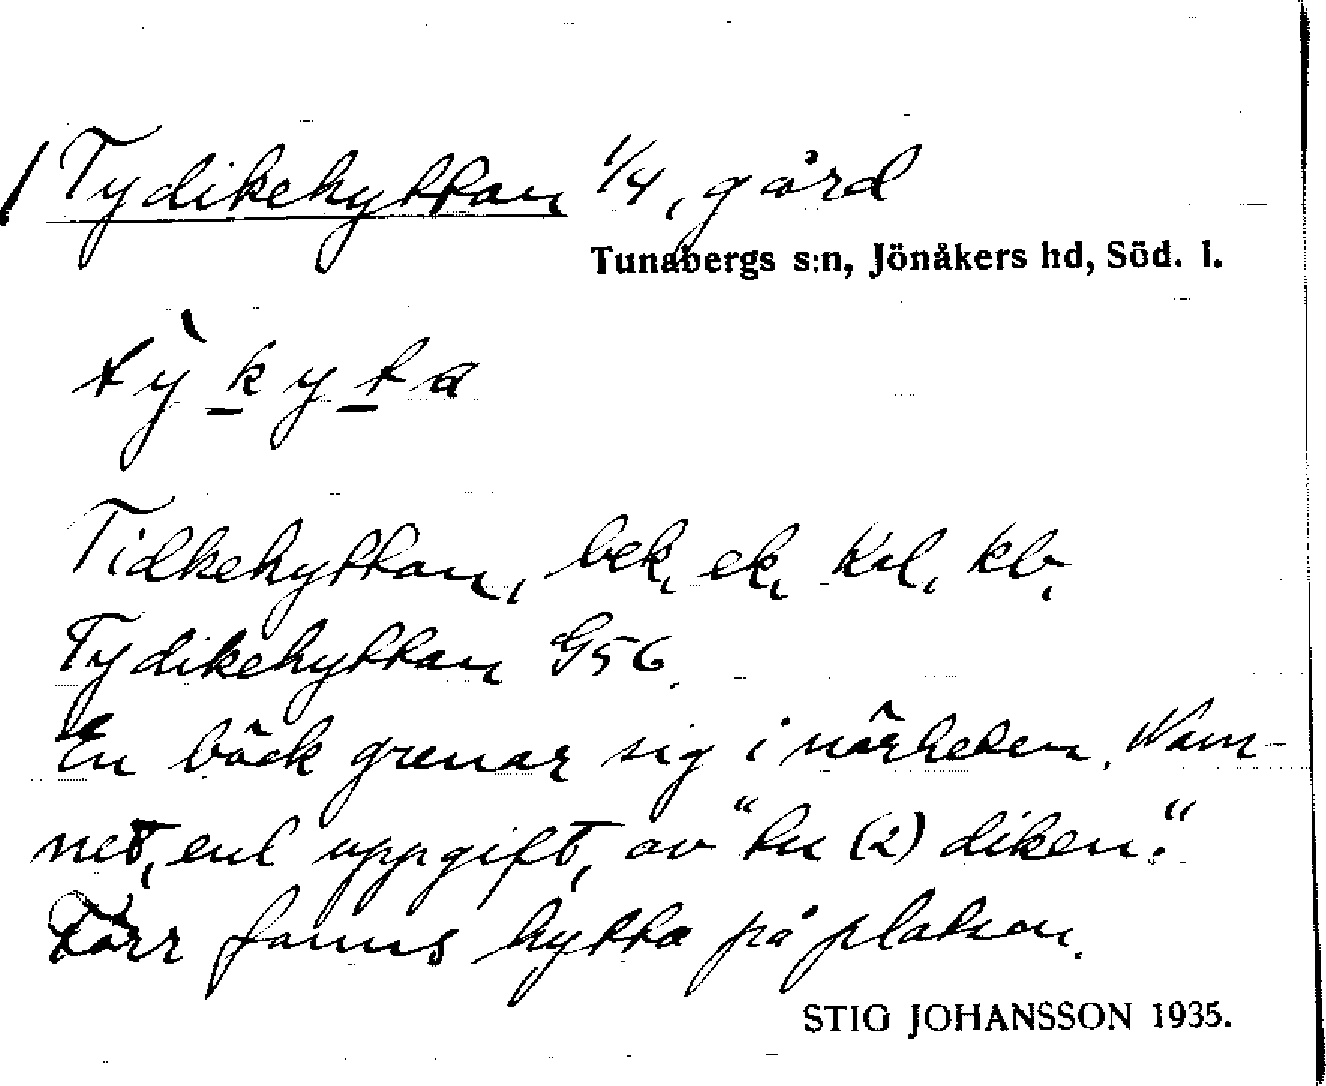 Tydikehyttan 1/4, gård
Tunabergs s:n, Jönåkers hd, Söd. l.
tỳkyta
Tidkehyttan, bek, ek, Krl, kb,
Tydikehyttan G56.
En bäck grenar sig i närheten. Nam-
net, enl uppgift, av "tu (2) diken."
Förr fanns hytta på platsen.
STIG JOHANSSON 1935.